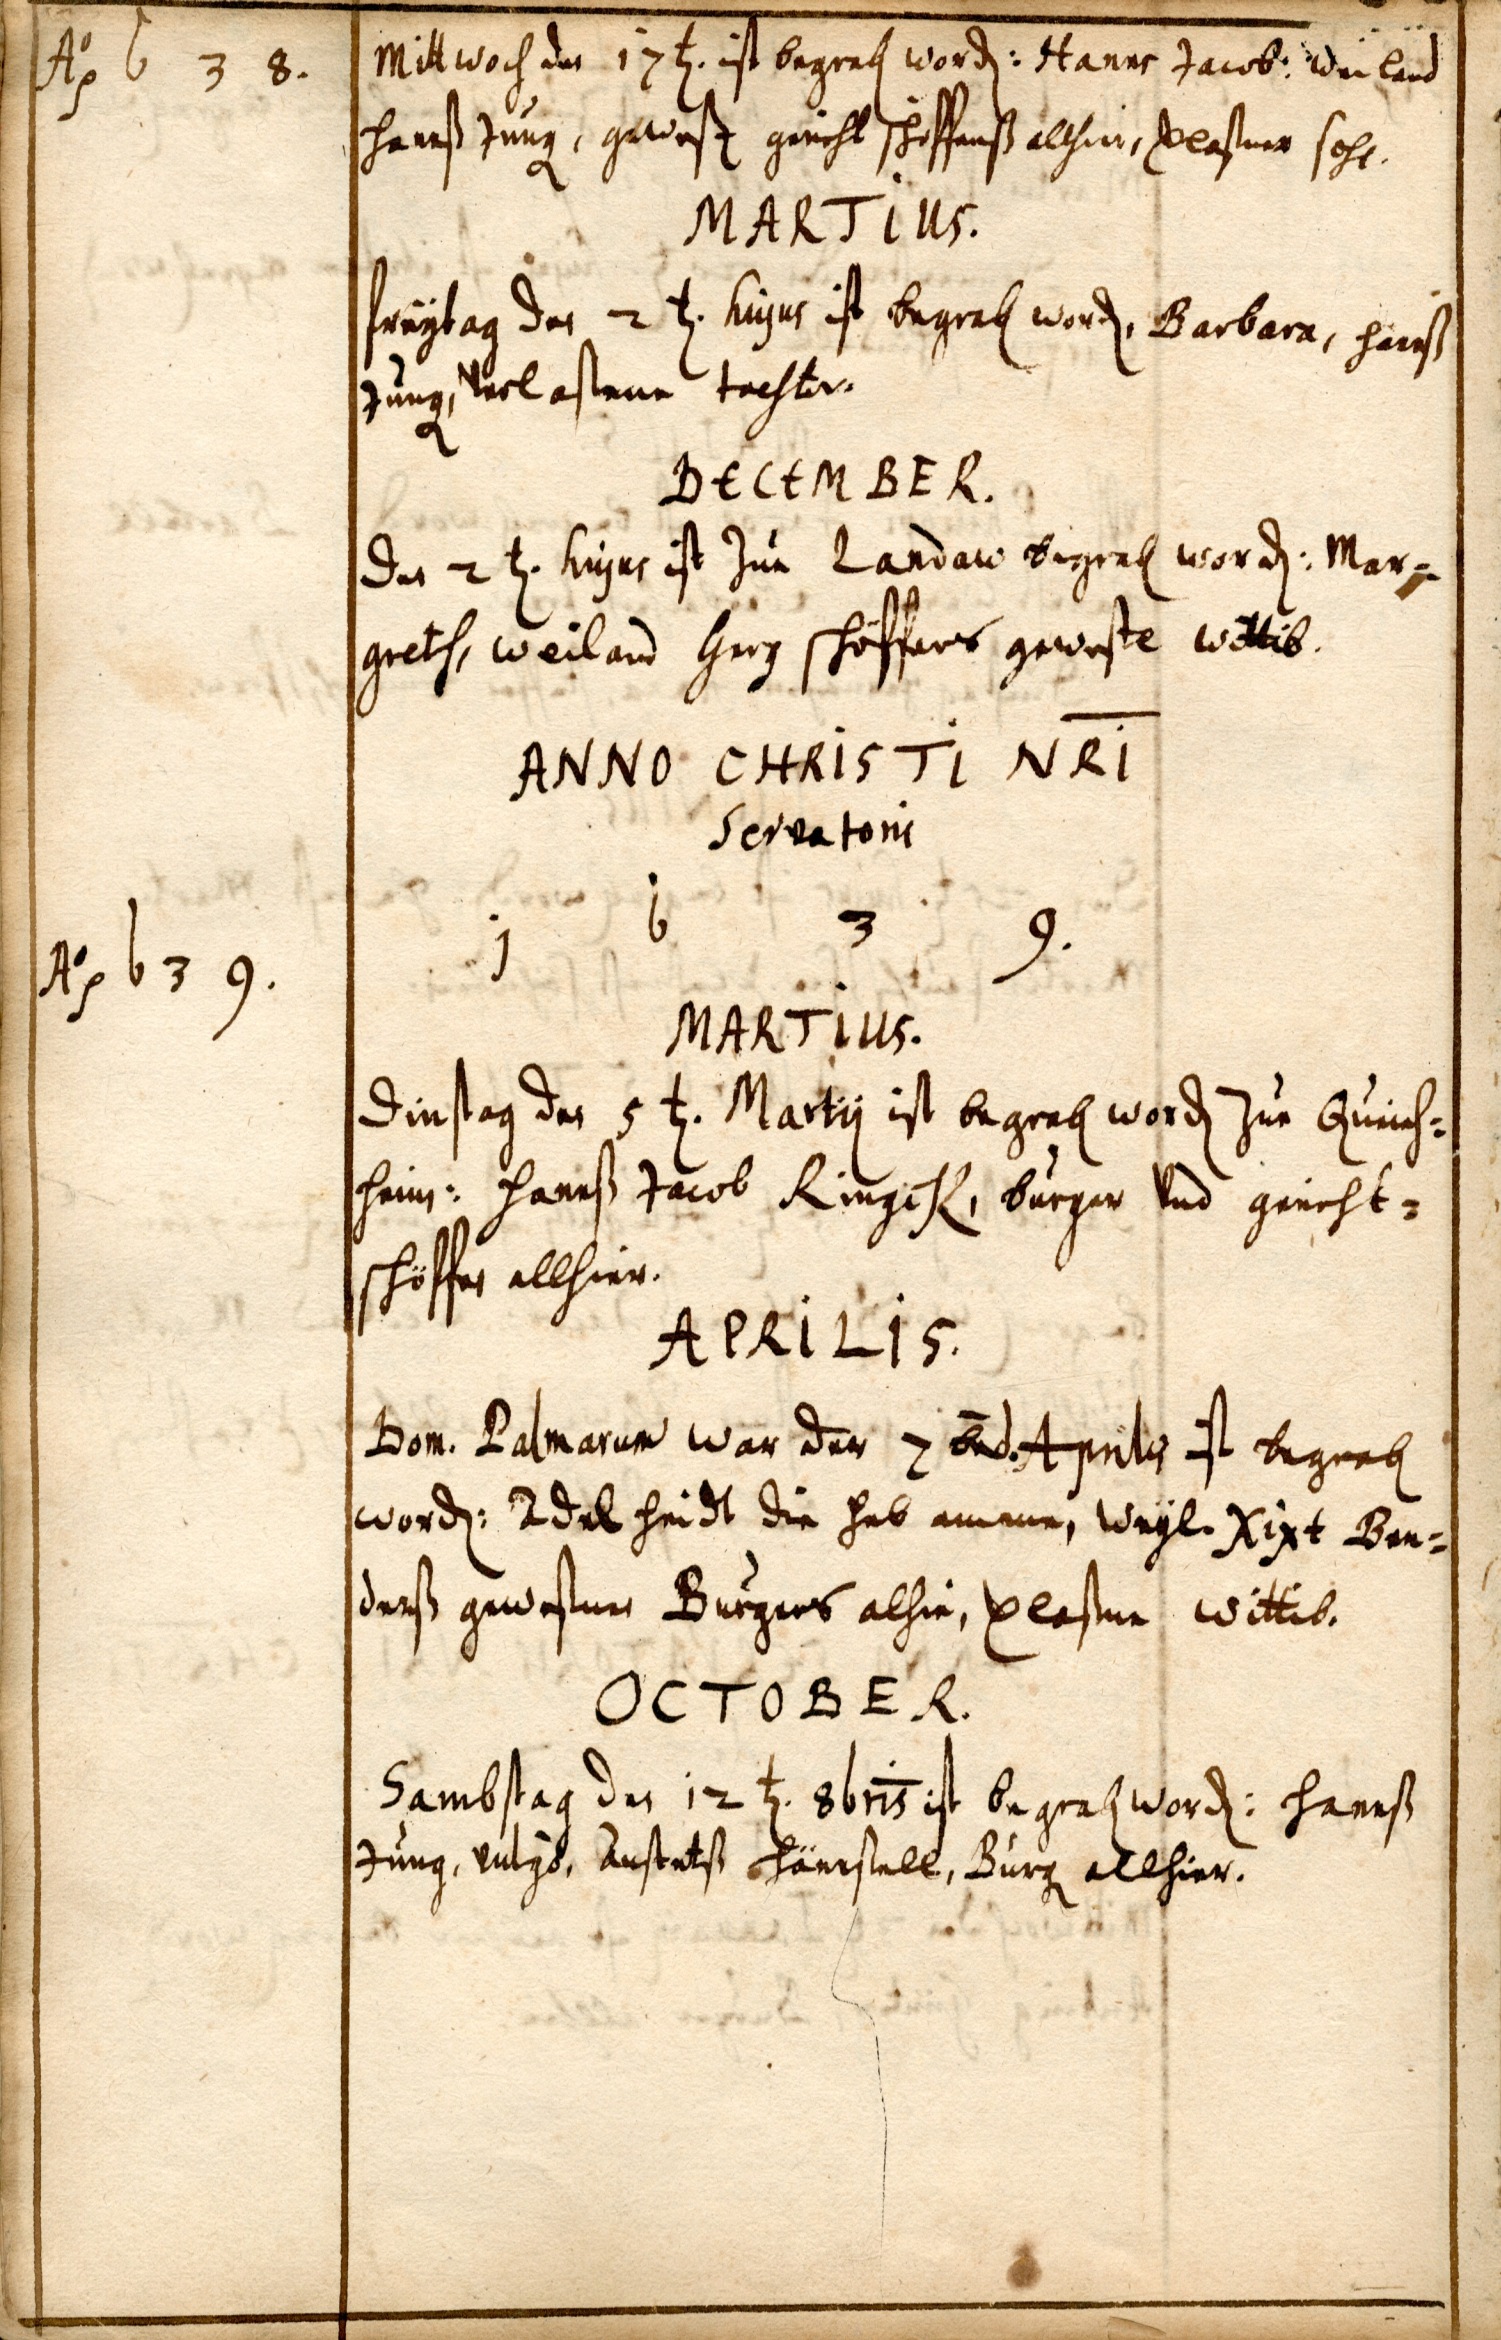 Aō 1638.
Mittwoch den 17t. ist begrab word: Hanns Jacob: weiland
Hanß Jung, gewest gericht schöffens allhier, vlaßner sohn.
MARTIUS.
Freytag den 2t. hujus ist begrab word, Barbara, Hanß
Jung, verlaßene tochter.
DECEMBER.
Den 2t. hujus ist zue Landaw begrab word: Mar=
greth, weiland Gerg schöffers geweste wittib.
ANNO CHRISTI NRI
Servatoris
1 6 3 9.
Aō 1639.
MARTIUS.
Dinstag den 5t. Martij ist begrab word zue Queich=
heim: Hanß Jacob Ringck, burger und gericht=
schöffen allhier.
APRILIS.
Dom. Palmarum war der 7 Aprilis ist begrab
word: Adelheidt die heb amme, weyl. Xixt Ben=
derß gewesenen Burgers alhie, vlaßne wittib.
OCTOBER.
Sambstag den 12t. 8bris ist begrab word: Hanß
Jung, vulgo, Hänsell, Burg allhier.